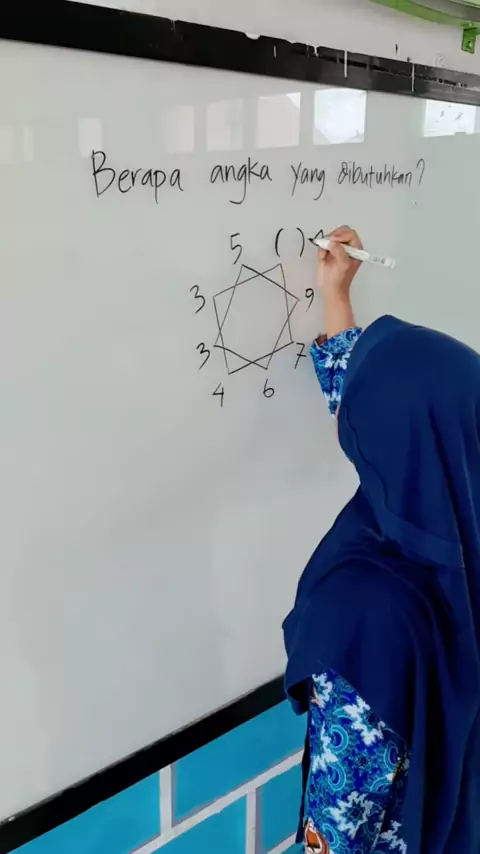 Berapa angka yang dibutuhkan?
5 ( )
3 9
3 7
4 6